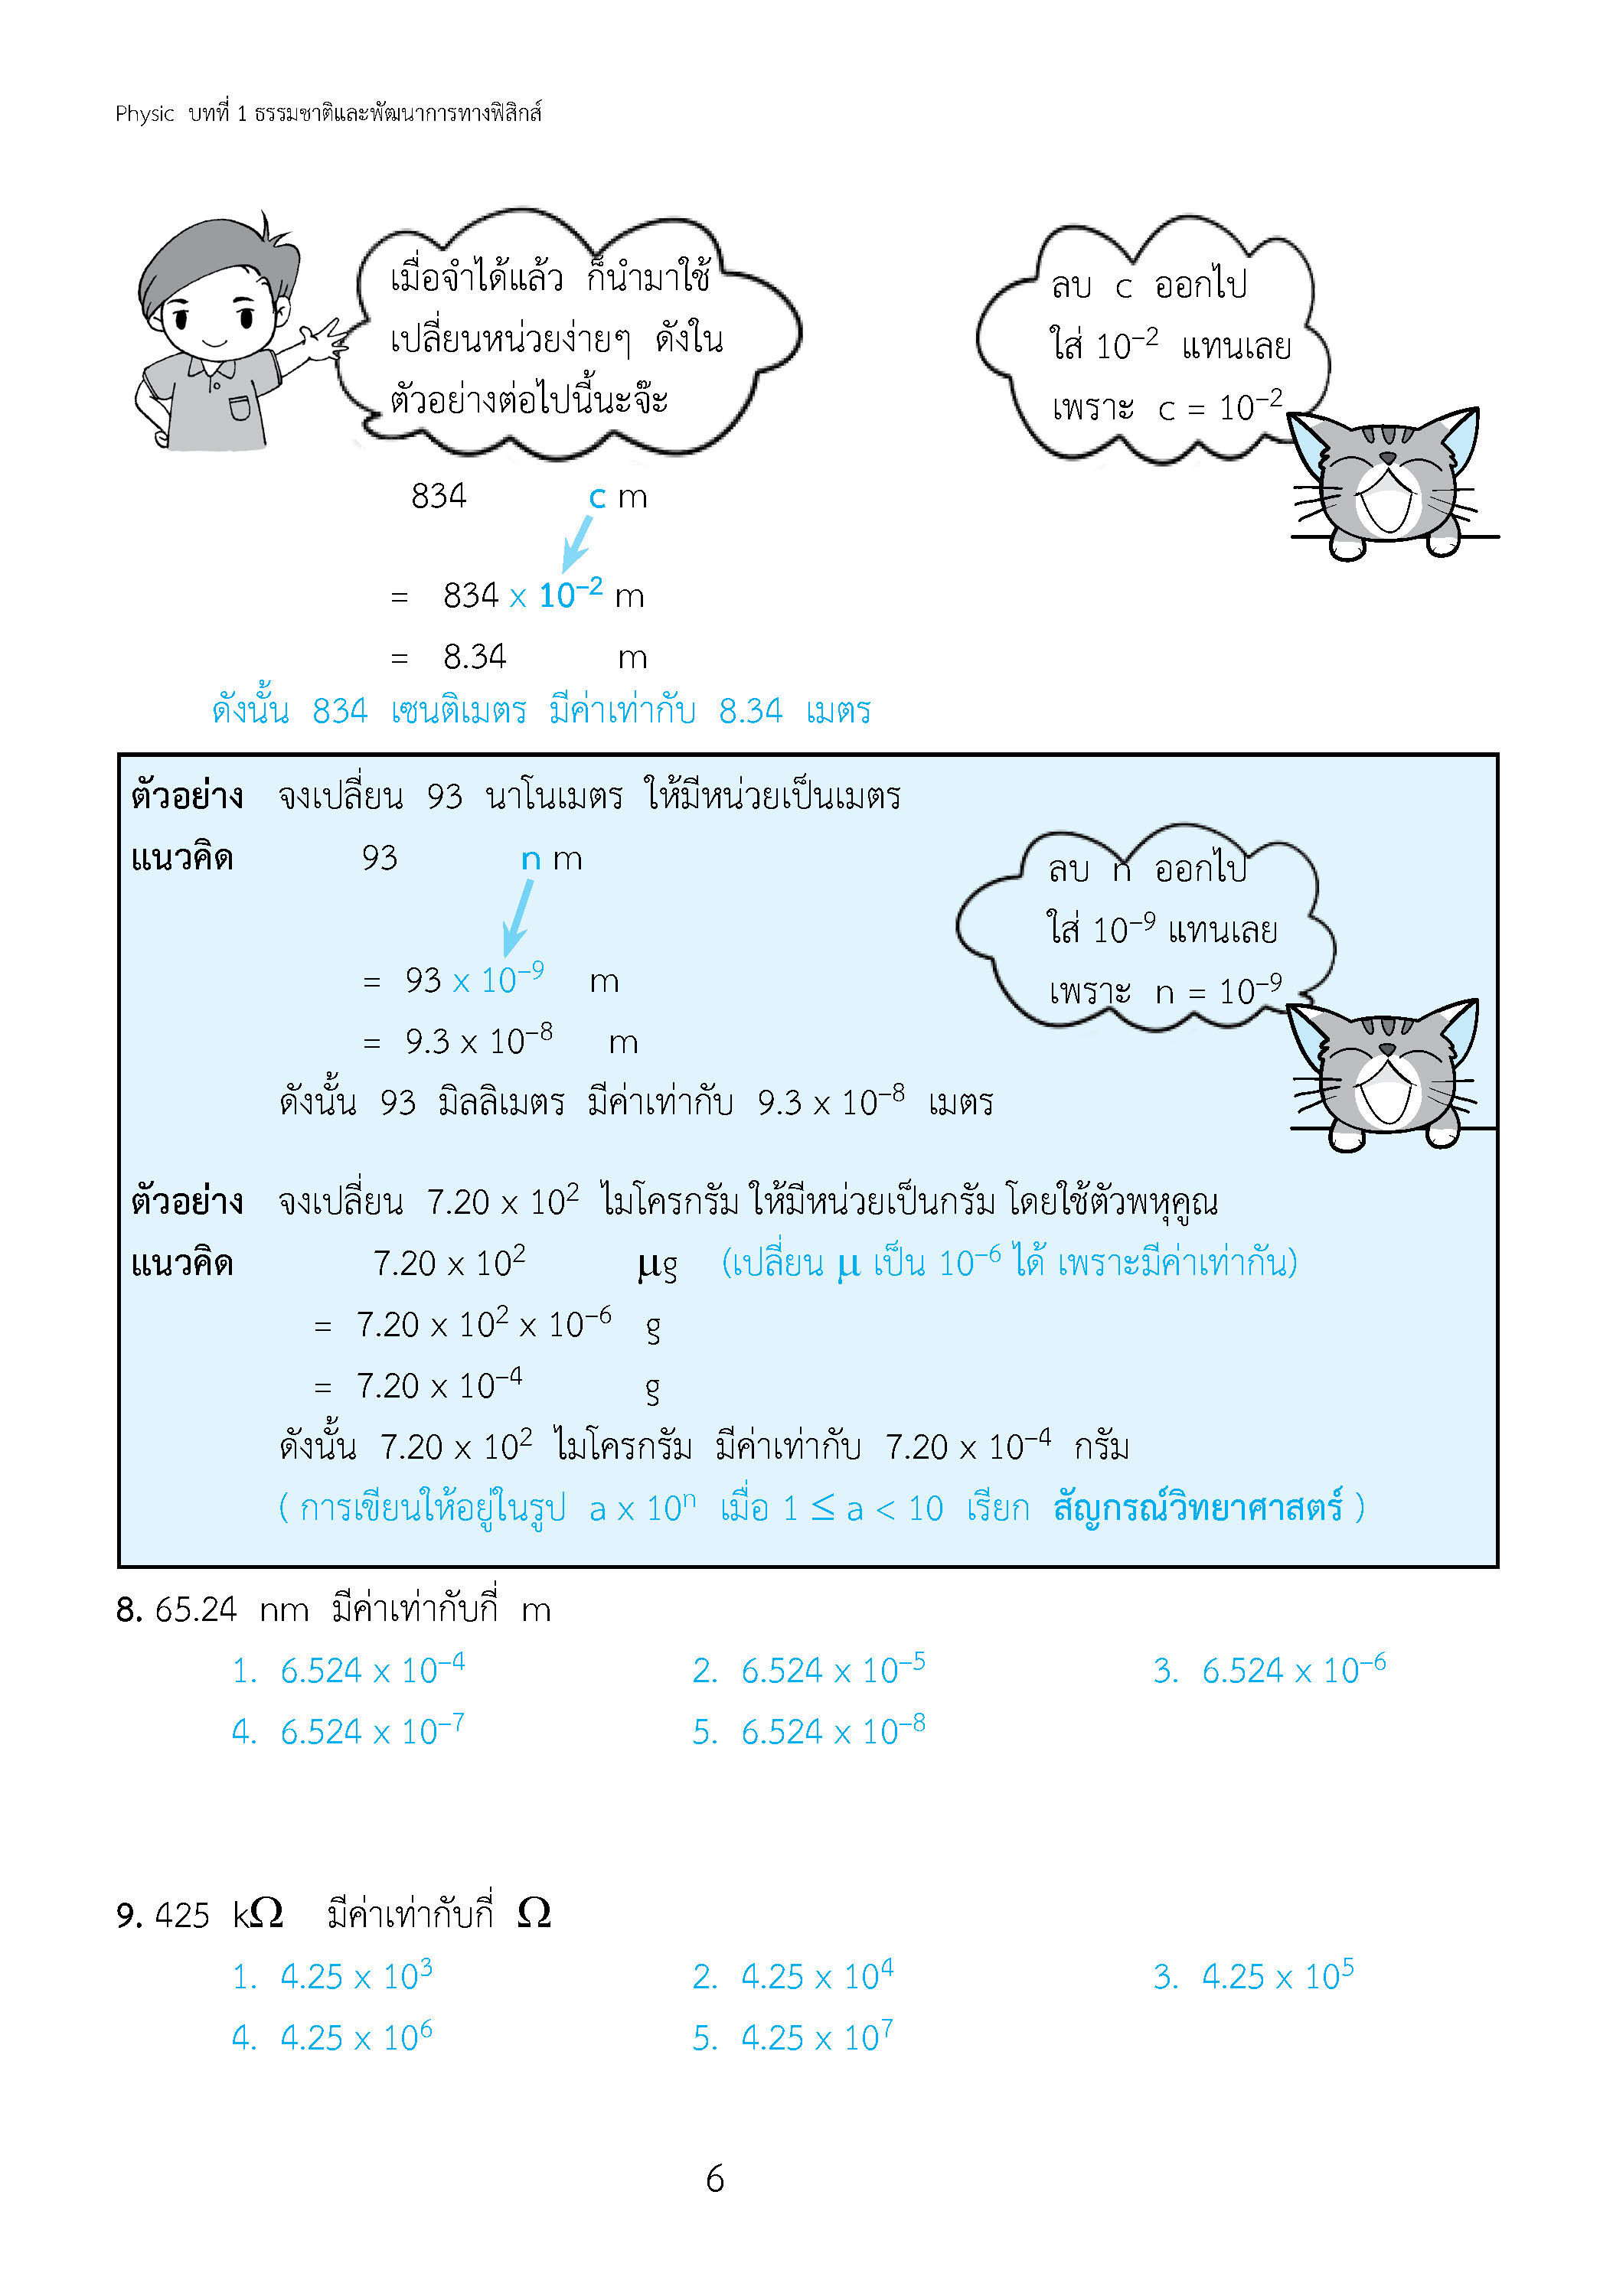 Physic บทที่ 1 ธรรมชาติและพัฒนาการทางฟิสิกส์
เมื่อจำได้แล้ว ก็นำมาใช้
เปลี่ยนหน่วยง่ายๆ ดังใน
ตัวอย่างต่อไปนี้นะจ๊ะ
ลบ c ออกไป
ใส่ 10⁻² แทนเลย
เพราะ c = 10⁻²
834 c m
= 834 x 10⁻² m
= 8.34 m
ดังนั้น 834 เซนติเมตร มีค่าเท่ากับ 8.34 เมตร
ตัวอย่าง จงเปลี่ยน 93 นาโนเมตร ให้มีหน่วยเป็นเมตร
แนวคิด 93 n m
= 93 x 10⁻⁹ m
= 9.3 x 10⁻⁸ m
ลบ n ออกไป
ใส่ 10⁻⁹ แทนเลย
เพราะ n = 10⁻⁹
ดังนั้น 93 มิลลิเมตร มีค่าเท่ากับ 9.3 x 10⁻⁸ เมตร
ตัวอย่าง จงเปลี่ยน 7.20 x 10² ไมโครกรัม ให้มีหน่วยเป็นกรัม โดยใช้ตัวพหุคูณ
แนวคิด 7.20 x 10² μg (เปลี่ยน μ เป็น 10⁻⁶ ได้ เพราะมีค่าเท่ากัน)
= 7.20 x 10² x 10⁻⁶ g
= 7.20 x 10⁻⁴ g
ดังนั้น 7.20 x 10² ไมโครกรัม มีค่าเท่ากับ 7.20 x 10⁻⁴ กรัม
( การเขียนให้อยู่ในรูป a x 10ⁿ เมื่อ 1 ≤ a < 10 เรียก สัญกรณ์วิทยาศาสตร์ )
8. 65.24 nm มีค่าเท่ากับกี่ m
1. 6.524 x 10⁻⁴ 2. 6.524 x 10⁻⁵ 3. 6.524 x 10⁻⁶
4. 6.524 x 10⁻⁷ 5. 6.524 x 10⁻⁸
9. 425 kΩ มีค่าเท่ากับกี่ Ω
1. 4.25 x 10³ 2. 4.25 x 10⁴ 3. 4.25 x 10⁵
4. 4.25 x 10⁶ 5. 4.25 x 10⁷
6